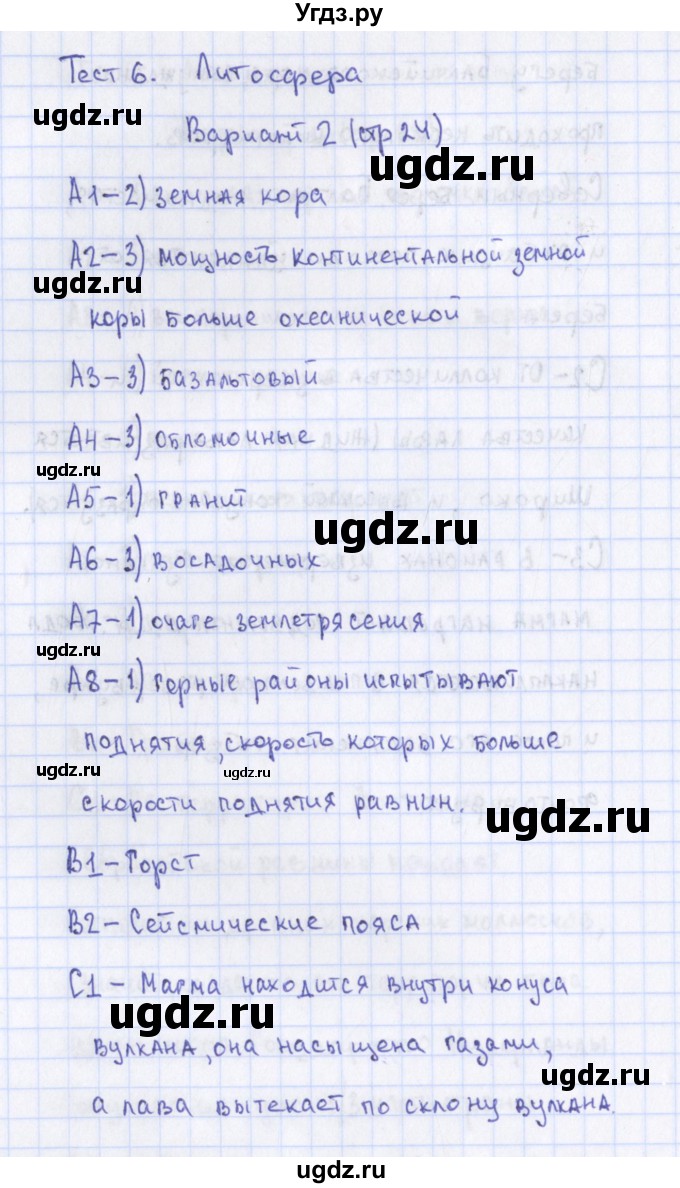 Угдз.ру
Тест 6. Литосфера
ugdz.ru
Вариант 2 (стр 24)
ugdz.ru
А1-2) земная кора
А2-3) мощность континентальной земной
ugdz.ru
коры больше океанической
А3-3) базальтовый
А4-3) обломочные
ugdz.ru
А5-1) гранит
ugdz.ru
А6-3) в осадочных
А7-1) очаге землетрясения
ugdz.ru
А8-1) Горные районы испытывают
поднятия, скорость которых больше
ugdz.ru
ugdz.ru
скорости поднятия равнин.
ugdz.ru
В1-Горст
В2-Сейсмические пояса
С1-Магма находится внутри конуса
ugdz.ru
вулкана, она насыщена газами,
ugdz.ru
а лава вытекает по склону вулкана.
ugdz.ru